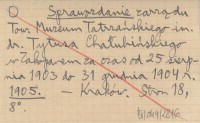 O Sprawozdanie zarządu
Tow. Muzeum Tatrzańskiego im.
dr. Tytusa Chałubińskiego
w Zakopanem za czas od 25 sierp-
nia 1903 do 31 grudnia 1904 r.
1905. — Kraków. Stron 18,
8°.